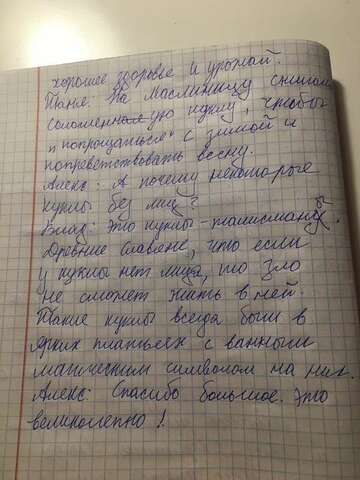 хорошее здоровье и урожай.
Таня: На Масленницу снигали
соломенную куклу, чтобы
"попрощаться" с зимой и
поприветствовать весну.
Алекс: А почему некоторые
куклы без лиц?
Влад: Это куклы-талисманы.
Древние славяне, что если
у куклы нет лица, то зло
не сможет жить в ней.
Такие куклы всегда были в
ярких платьях с ванным
магическим символом на них.
Алекс: Спасибо большое. Это
великолепно!